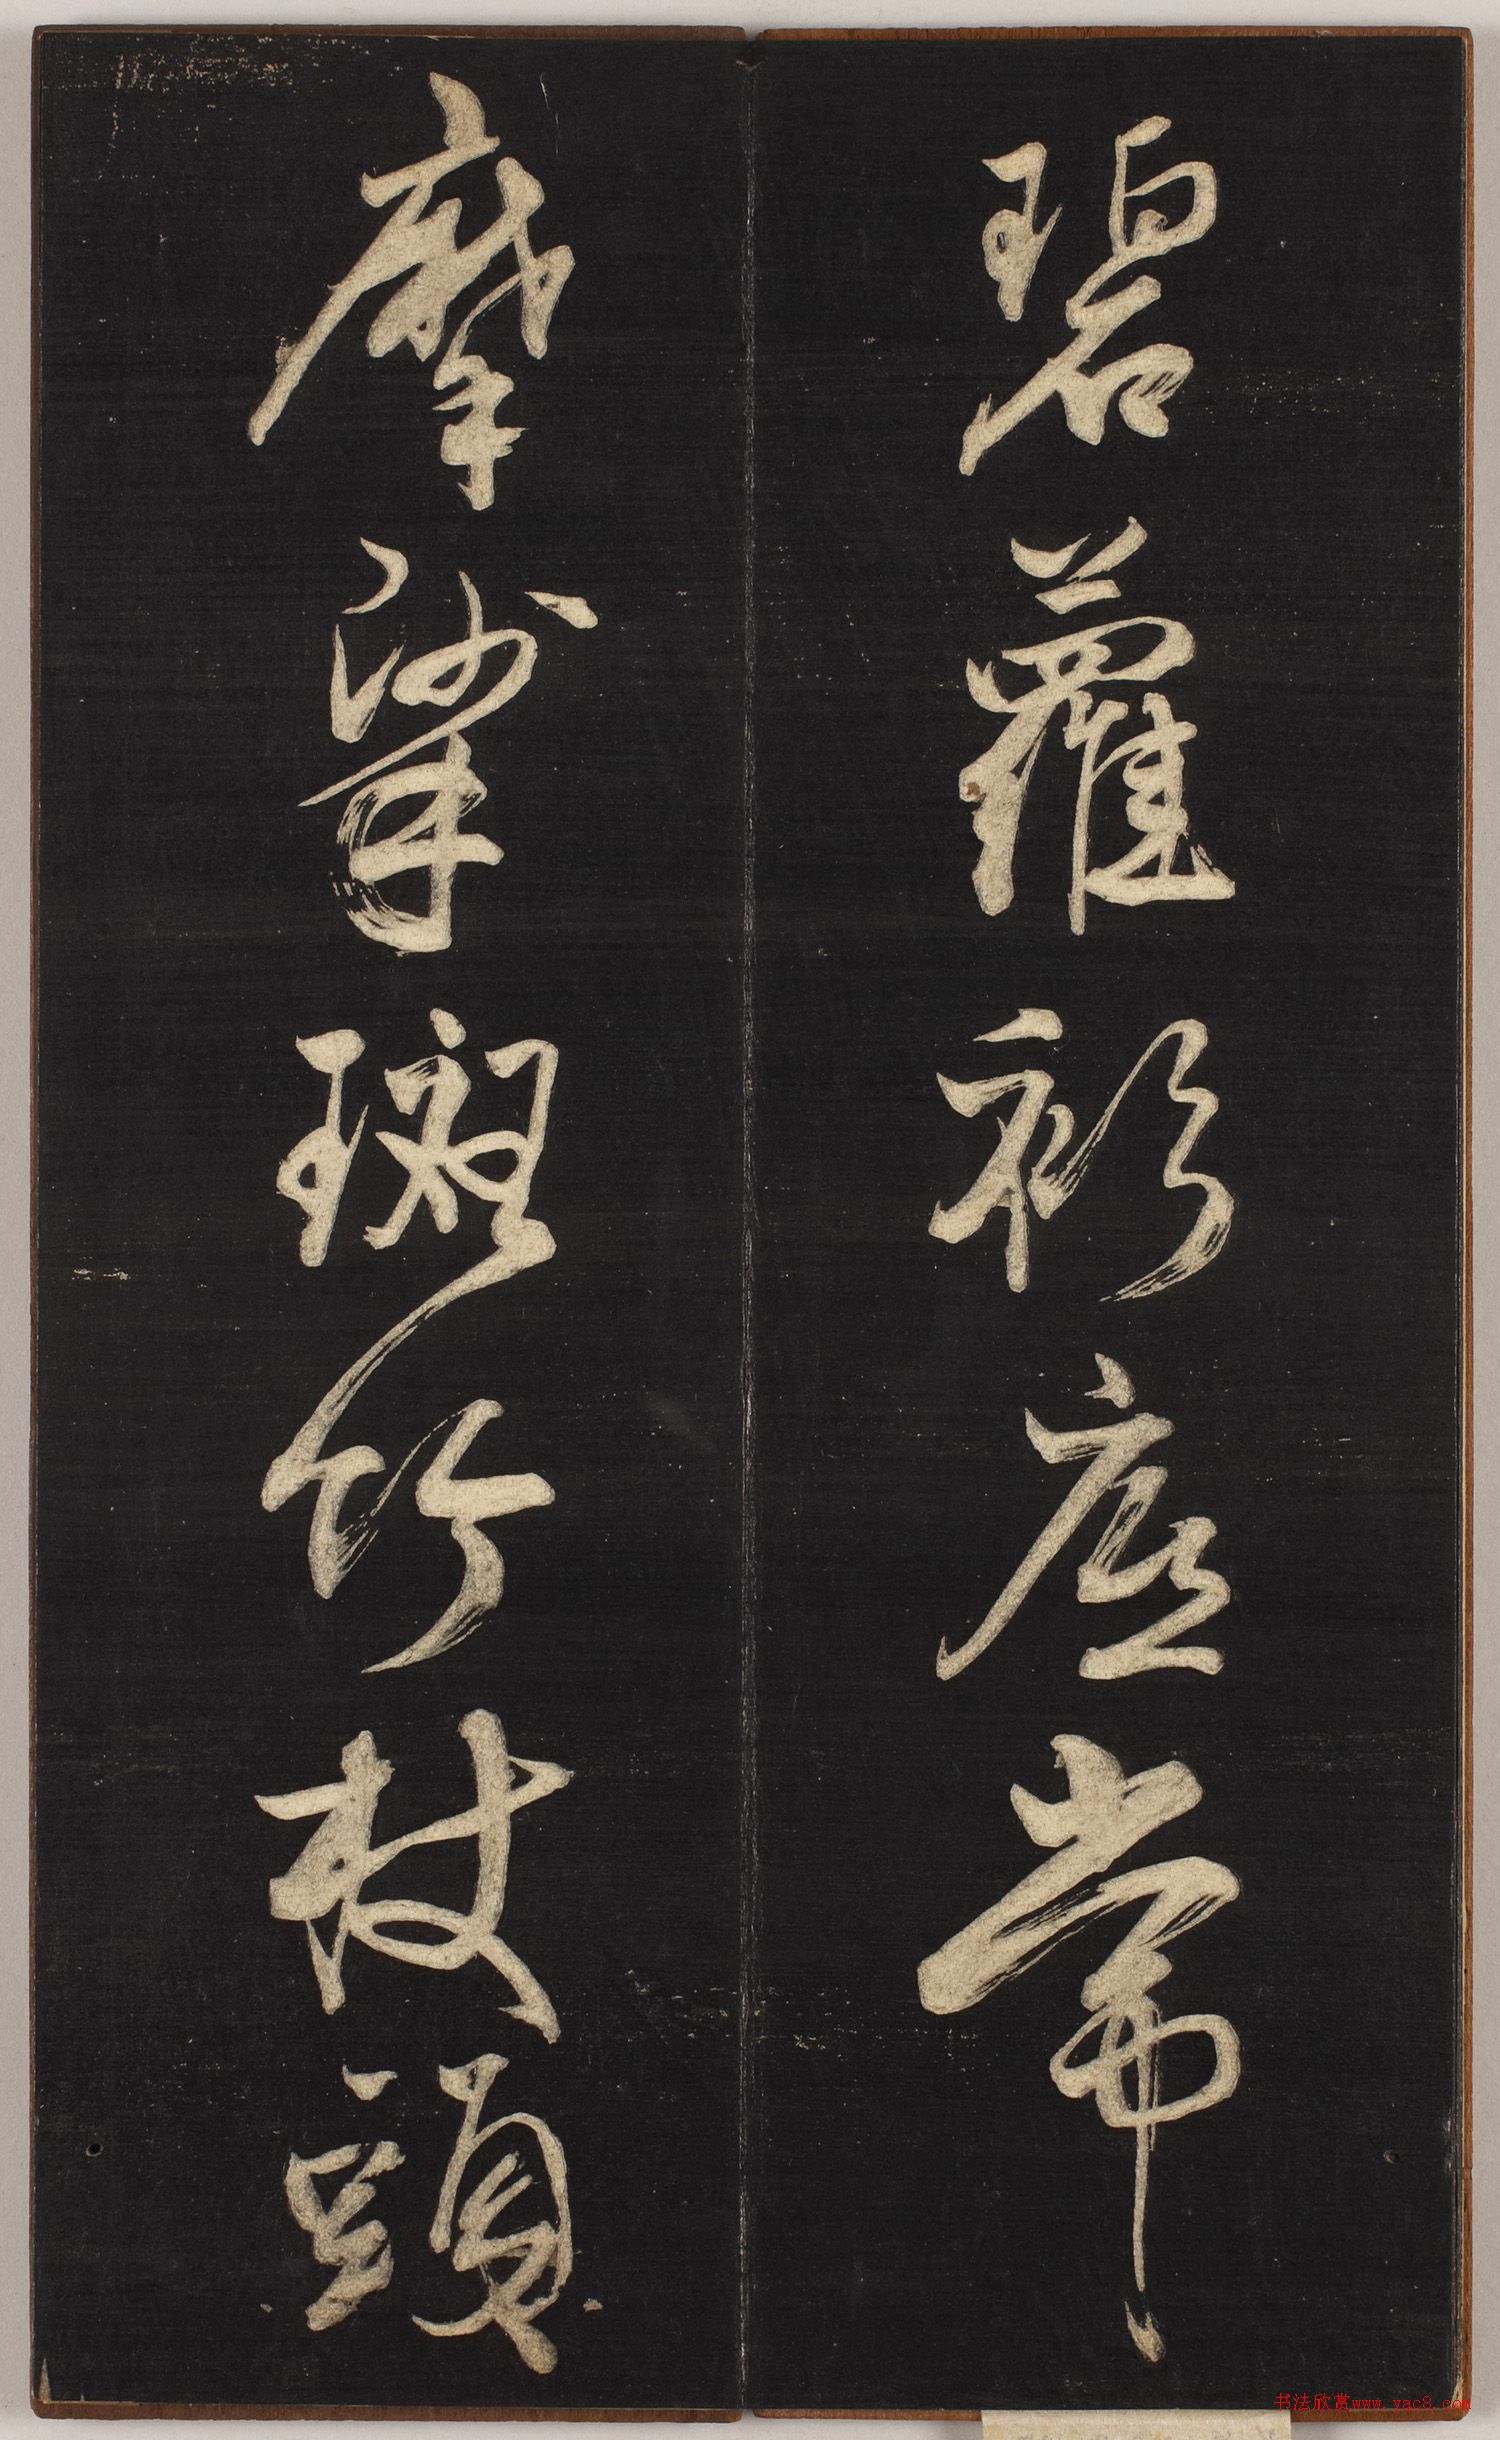 碧蘿衫虛常
摩挲斑竹杖頭
书法欣赏www.yac8.com